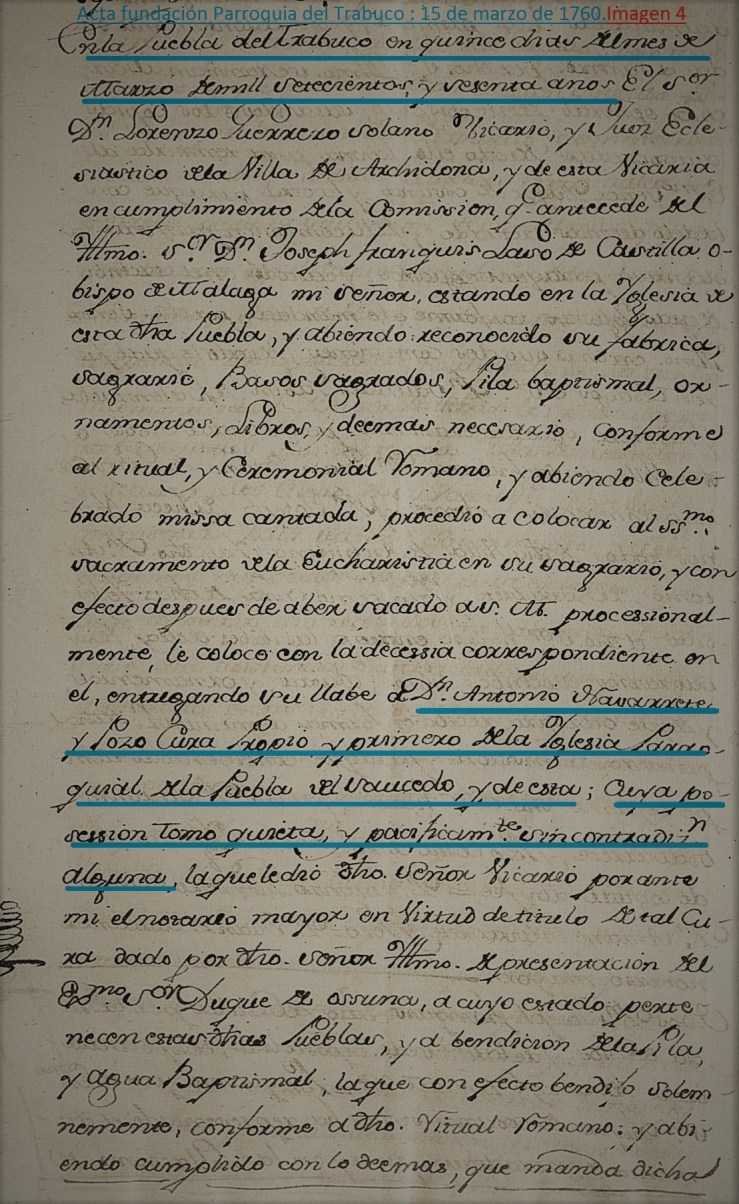 Acta fundación Parroquia del Trabuco : 15 de marzo de 1760.Imagen 4
En la Puebla del Trabuco en quince dias del mes de
Marzo de mil setecientos, y sesenta años El Sor.
Dn. Lorenzo Guerrero Solano Vicario, y Juez Ecle-
siastico de la Villa de Archidona, y de esta Vicaria
en cumplimiento de la Comission, q. antecede del
Illmo. Sr. Dn. Joseph franquis Laso de Castilla o-
bispo de Malaga mi señor, estando en la Yglesia de
esta dha Puebla, y abiendo reconocido su fabrica,
sagrario, Basos sagrados, Pila baptismal, or-
namentos, Libros, y deemas necesario, conforme
al ritual, y Ceremonial Romano, y abiendo Cele-
brado missa cantada, procedio a colocar al SSmo.
sacramento de la Eucharistia en su sagrario, y con
efecto despues de aber sacado a S. M. processional-
mente, le coloco con la decessia correspondiente en
el, entregando su llabe a Dn. Antonio Navarrete
y Pozo Cura Propio y primero de la Yglesia Parro-
quial de la Puebla del Saucedo, y de esta; Cuya po-
session tomo quieta, y pacificamte. sin contradizn
alguna, la que le dio dho. Señor Vicario por ante
mi el notario mayor en Virtud de titulo de tal Cu-
ra dado por dho. Señor Illmo. de presentación del
Exmo Sor Duque de ossuna, a cuyo estado perte-
necen estas dhas Pueblas, y a bendicion de la Pila,
y agua Baptismal, la que con efecto bendijo solem-
nemente, conforme a dho. Ritual Romano; y abi-
endo cumplido con lo deemas, que manda dicha